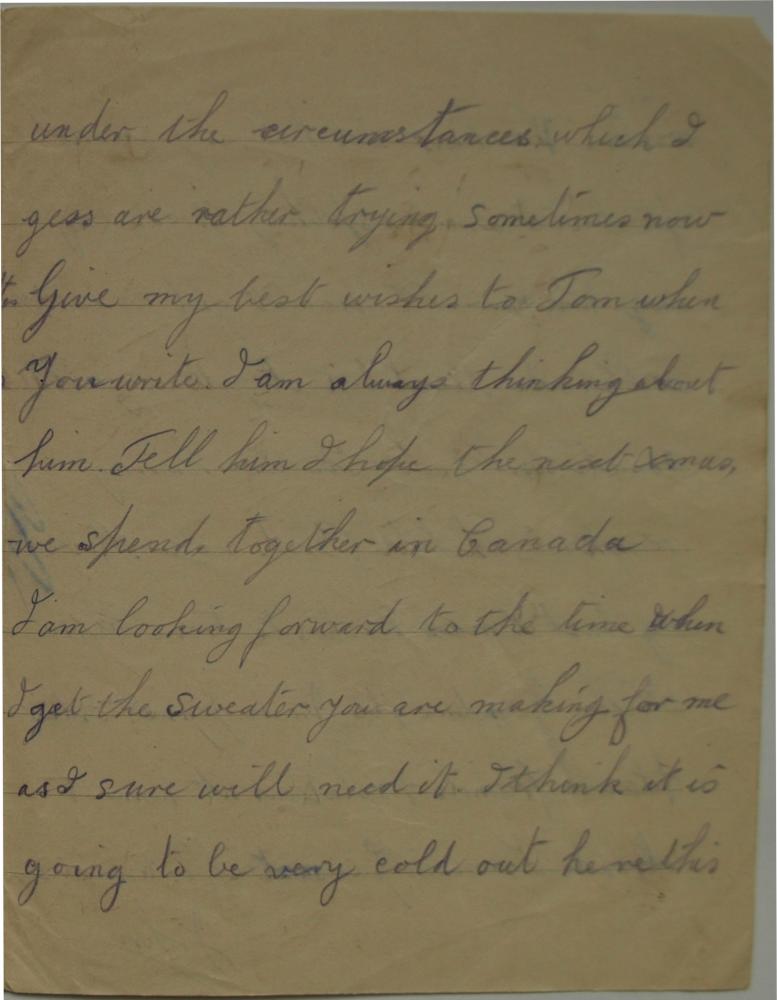 under the circumstances, which I
gess are rather trying sometimes now
Give my best wishes to Tom when
You write. I am always thinking about
him. Tell him I hope the next Xmas,
we spend, together in Canada
I am looking forward to the time when
I get the sweater you are making for me
as I sure will need it. I think it is
going to be very cold out here this